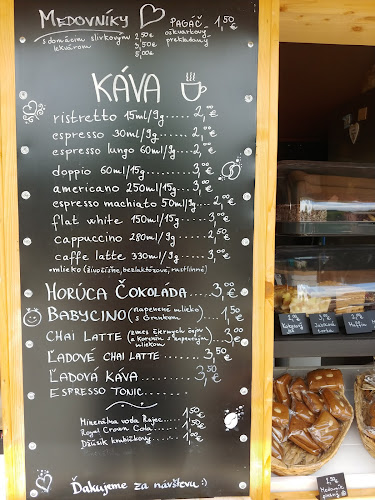 MEDOVNÍKY
PAGÁČ 1,50 €
s domácim slivkovým lekvárom
2,50 €
3,50 €
8,00 €
oškvarkový prekladaný
KÁVA
ristretto 15ml/9g.....2,00 €
espresso 30ml/9g......2,00 €
espresso lungo 60ml/9g.2,00 €
doppio 60ml/15g.......3,00 €
americano 250ml/15g...3,00 €
espresso machiato 50ml/9g..2,00 €
flat white 150ml/15g....3,00 €
cappuccino 280ml/9g....2,50 €
caffe latte 330ml/9g....3,00 €
+mlieko (živočíšne, bezlaktózové, rastlinné)
HORÚCA ČOKOLÁDA...3,00 €
BABYCINO (napenené mlieko s Grankom) 1,50 €
CHAI LATTE (zmes čiernych čajov a korenín s napeneným mliekom) 3,00 €
ĽADOVÉ CHAI LATTE....3,50 €
ĽADOVÁ KÁVA..........3,50 €
ESPRESSO TONIC........
Minerálna voda Rajec..1,50 €
Royal Crown Cola..1,50 €
Džúsik krabičkový.....
Ďakujeme za návštevu :)
Muffin
Medovník